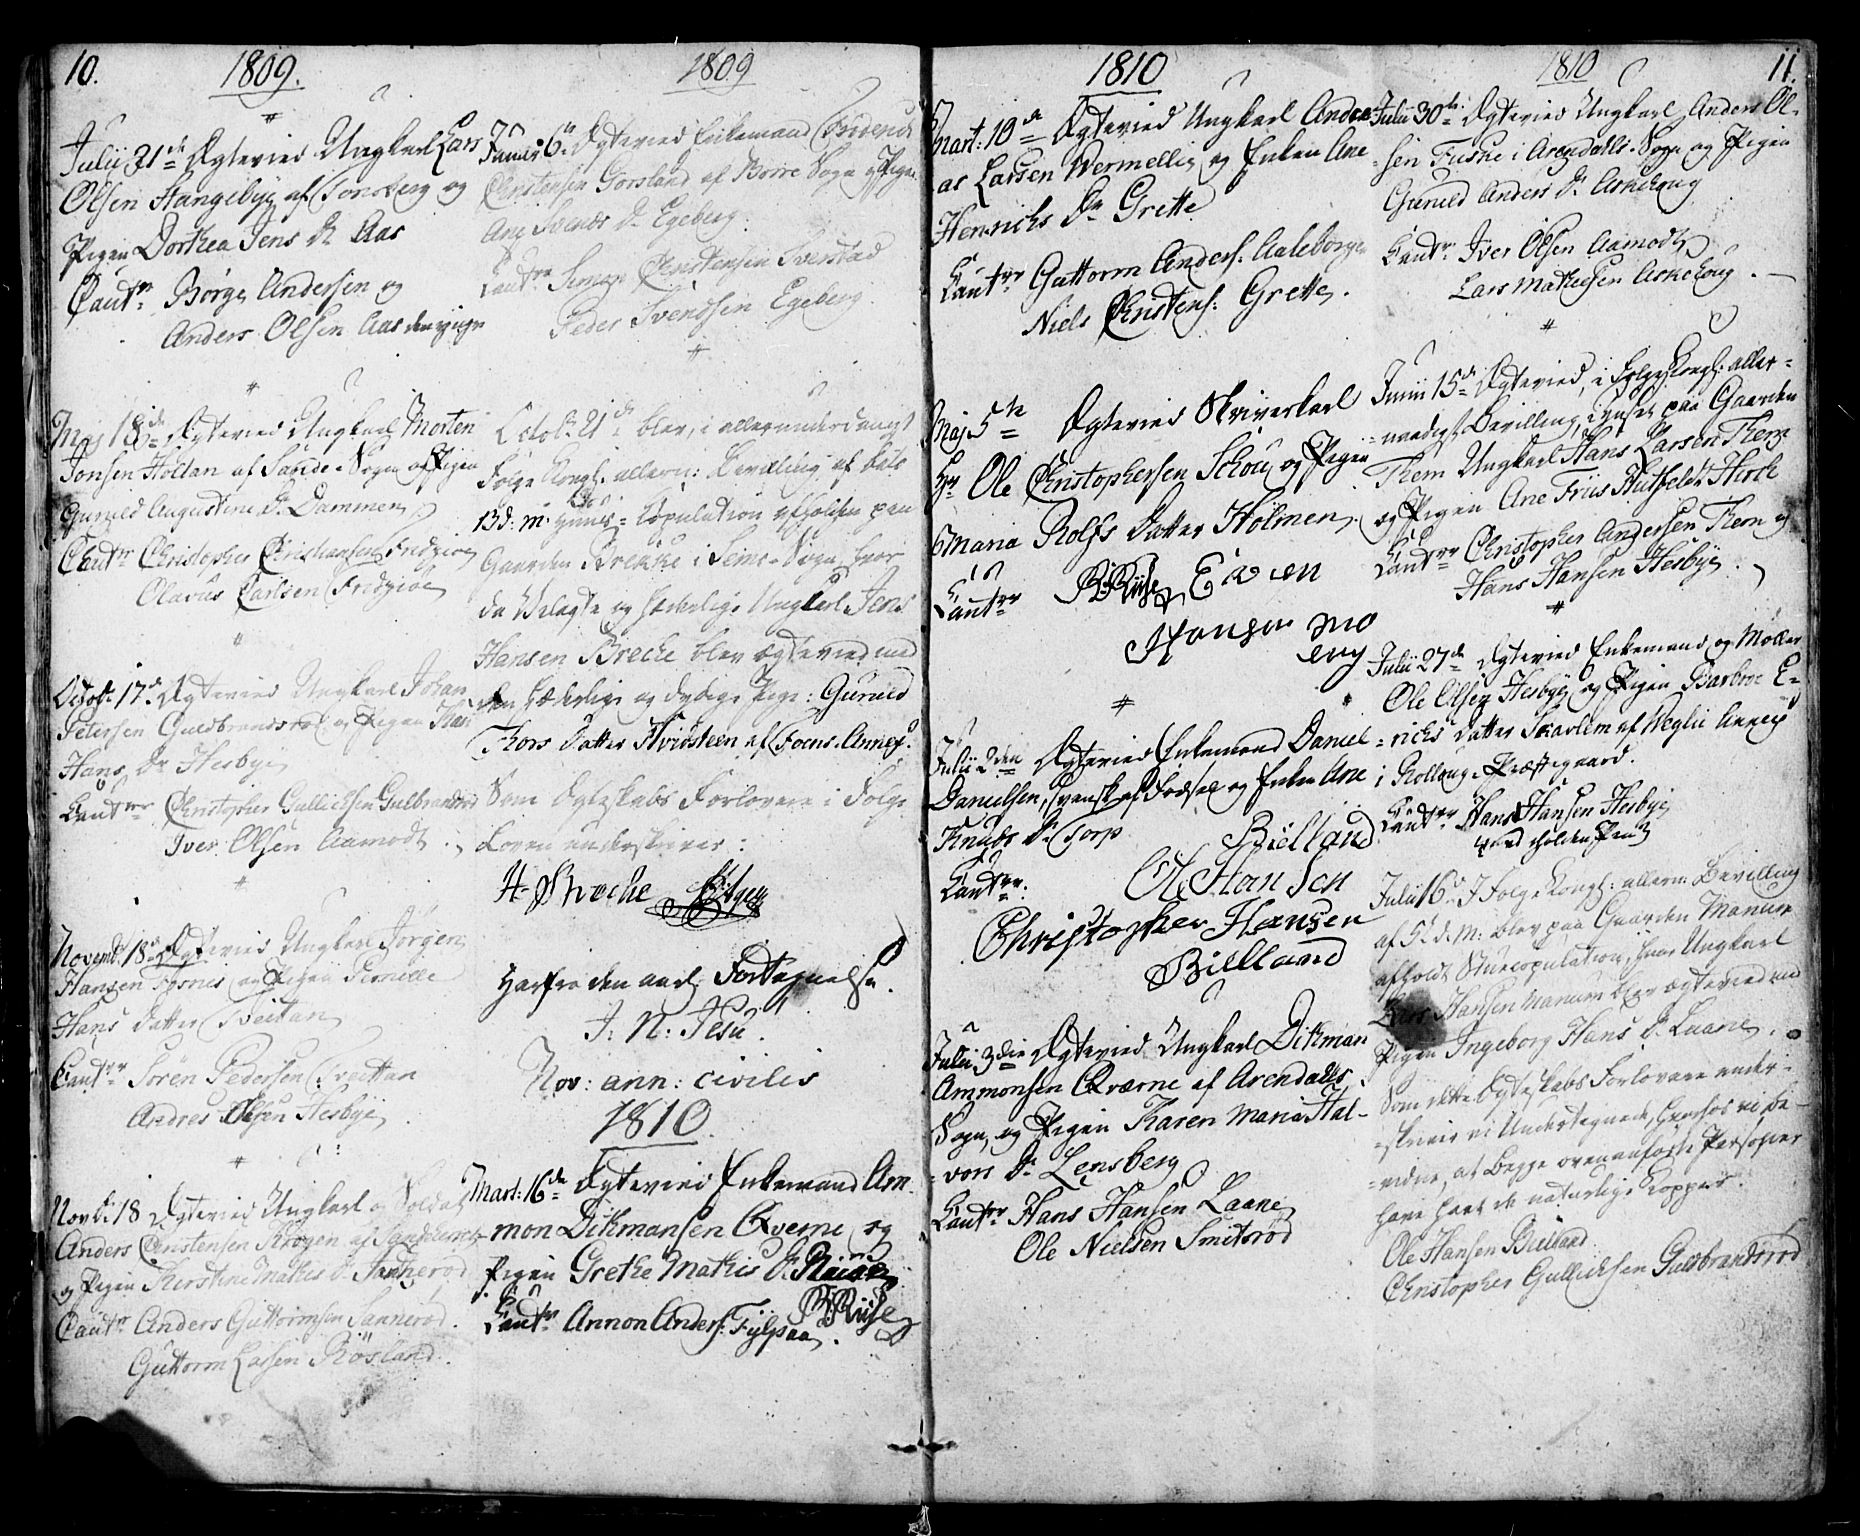 10.
1809.
Julii 21de Ægtevied Ungkarl Lars
Olsen Hangebye af Tonsberg og
Pigen Dorthea Jens Dr Aas
Cautr Börge Andersen og
Anders Olsen Aas den yngr
Maj 18de Ægtevied Ungkarl Morten
Jonsen Holtan af Sande Sogn og Pigen
Gunild Augustini Dr Dammen
Cautrr Christopher Christiansen Fridgioe
Olavus Carlsen Fridgioe
Octobr 17de Ægtevied Ungkarl Johan
Petersen Guldbrandsröd og Pigen
Hans Dr Hesbye
Cautrr Christopher Gullichsen Gulbrandsröd
Iver Olsen Aamodt
Novembr 18de Ægtevied Ungkarl Jörgen
Hansen Fossnes og Pigen Pernille
Hans Datter Tveitan
Cautrr Sören Pedersen Tveittan
Andres Olsen Hesbye
Novbr 18 Ægtevied Ungkarl og Soldat
Anders Christensen Krogen af Sandeherret
og Pigen Kirstine Mathis Dr Sannerød
Cautrr Anders Guttormsen Sannerød.
Guttorm Larsen Röesland.
1809
Junii 6te Ægtevied Enkemand Friderich
Christensen Gorsland af Borre Sogn og Pigen
Ane Svends Dr Egeberg
Cautrr Simon Christensen Sverstad
Peder Svendsen Egeberg
Octobr 21de blev, i allerunderdanigst
Følge Kongl. allern: Bevilling af dato
13d: m: Huus-Copulation afholden paa
Gaarden Brekke i Sems-Sogn, hvor
da Velagte og hæderlige Ungkarl Jens
Hansen Breche blev ægtevied med
den hæderlige og dydige Pige: Gunild
Thors Datter Hvidsteen af Foens-Annex.
Som Ægteskabs Forlovere i Følge
Loven underskriver:
H. Breche
Herfra den aarl. Fortegnelse.
I: N: Jesu.
Nov: ann: civilis
1810.
Mart: 16de Ægtevied Enkemand Am-
mon Dikmansen Qverne og
Pigen Grethe Mathis Dr
Cautrr Ammon Anders: Fylpaa. B: Riise
1810
Mart: 10de Ægtevied Ungkarl Andre-
as Larsen Vermellie og Enken Ane
Henrichs Dr Grette
Cautrr Guttorm Anders: Aaleborge
Niels Christens: Grette.
Maj 5te Ægtevied Skriverkarl
Hr Ole Christophersen Schou og Pigen
Maria Rolfs Datter Holmen
Cautrr B. Riise Even
Hansen Mo
eny
Julii 2den Ægtevied Enkemand Daniel
Danielsen, svensk af Fødsel og Enken Ane
Knuds Dr Torp
Bielland
Cautrr. O Hansen
Christopher Hansen
Bielland
Julii 3die Ægtevied Ungkarl Dikman
Ammonsen Qværne af Arendahls
Sogn, og Pigen Karen Maria Hal-
vors Dr Lensberg
Cautrr Hans Hansen Laane
Ole Nielsen Smitsröd
1810
11.
Julii 30te Ægtevied Ungkarl Anders Ol-
sen Fuske i Arendahls-Sogn og Pigen
Gunild Anders Dr Askehoug
Cautrr Iver Olsen Aamodt
Lars Mathisen Askehoug.
Junii 15de Ægtevied, i Følge Kongl: aller-
naadigst Bevilling, i Huset paa Gaarden
Them Ungkarl Hans Larsen Them
og Pigen Ane Friis Hutfeldt Hirch
Cautrr Christopher Andersen Them og
Hans Hansen Hesbye.
Julii 27de Ægtevied Enkemand og Møller
Ole Olsen Hesbye og Pigen Barbroe E-
richs Datter Skavlem af Veglie Annex
i Rollougs Præstegaard.
Cautrr Hans Hansen Hesbye
med holden Pen
Julii 16de I Følge Kongl: allern: Bevilling
af 5te d: M: blev paa Gaarden Manum
afholdt Huuscopulation, hvor Ungkarl
Lars Hansen Manum blev ægtevied med
Pigen Ingeborg Hans Dr Laane.
Som dette Ægteskabs Forlovere under-
skriver vi Undertegnede, hvorhos vi be-
vidne, at begge ovenanførte Personer
have havt de naturlige Kopper.
Ole Hansen Bielland
Christopher Gullichsen Guldbrandsröd